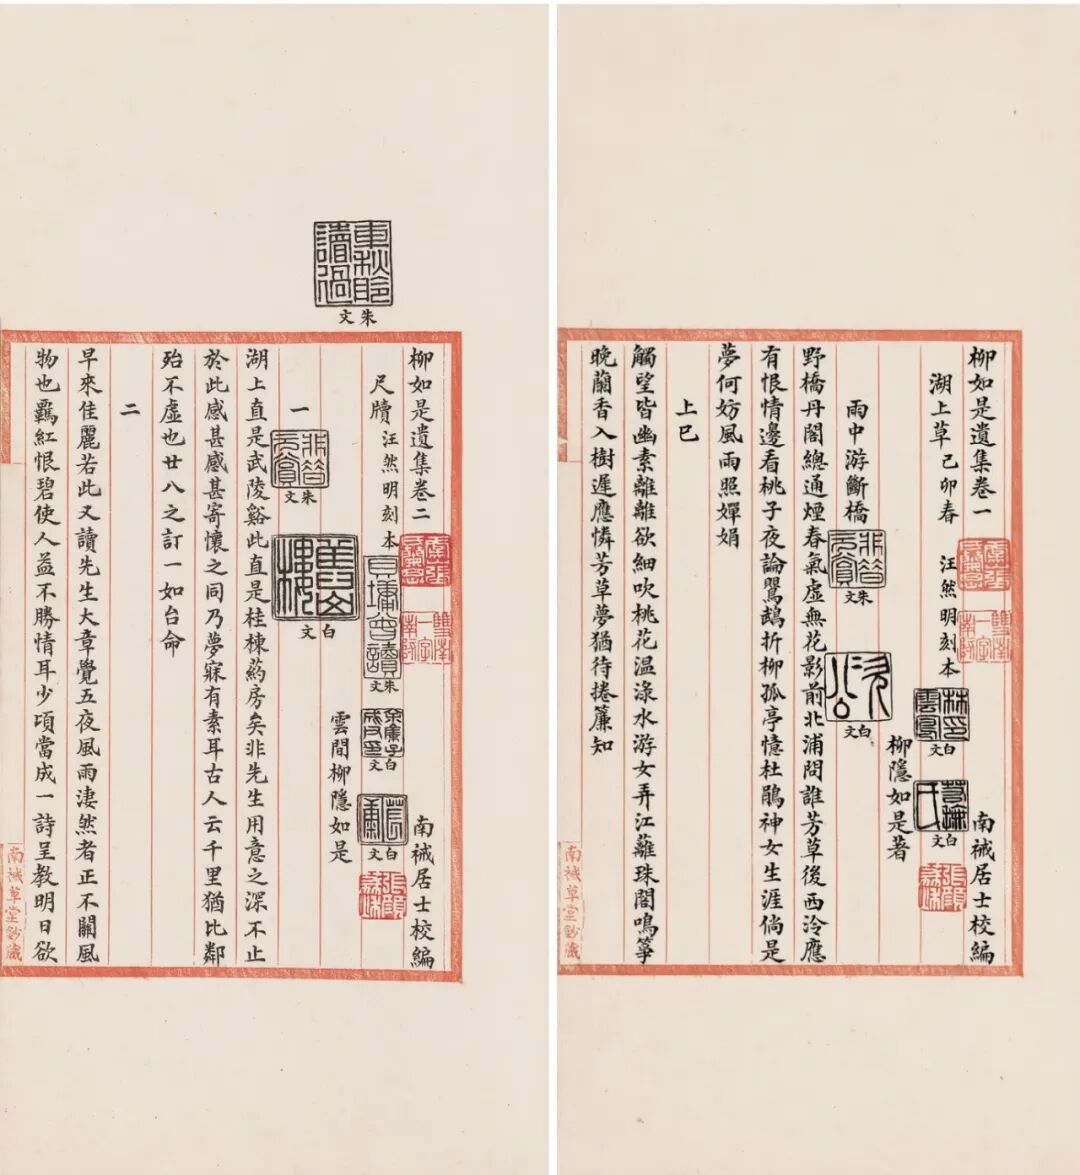 柳如是遺集卷一 南祴居士校編
湖上草 己卯春 汪然明刻本
林雲鳳印
白文
白文
張顥
柳隱如是著
雨中游斷橋
朱文
白文
野橋丹閣總通煙春氣虛無花影前北浦問誰芳草後西泠應
有恨情邊看桃子夜論鸎鵡折柳孤亭憶杜鵑神女生涯倘是
夢何妨風雨照嬋娟
上巳
觸望皆幽素離離欲細吹桃花溫淥水游女弄江蘺珠閣鳴箏
晚蘭香入樹遲應憐芳草夢猶待捲簾知
南祴草堂鈔藏
讀過
朱文
柳如是遺集卷二 南祴居士校編
尺牘 汪然明刻本
朱文
白文
白文
張顥
雲間柳隱如是
一
朱文
白文
湖上直是武陵谿此直是桂棟藥房矣非先生用意之深不止
於此感甚感甚寄懷之同乃夢寐有素耳古人云千里猶比鄰
殆不虛也廿八之訂一如台命
二
早來佳麗若此又讀先生大章覺五夜風雨淒然者正不關風
物也羈紅恨碧使人益不勝情耳少項當成一詩呈教明日欲
南祴草堂鈔藏